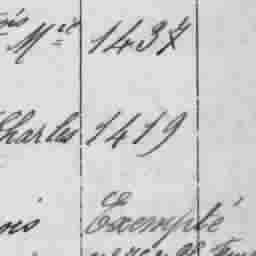 ois
Mie 1437
Charles 1419
ois Exempté